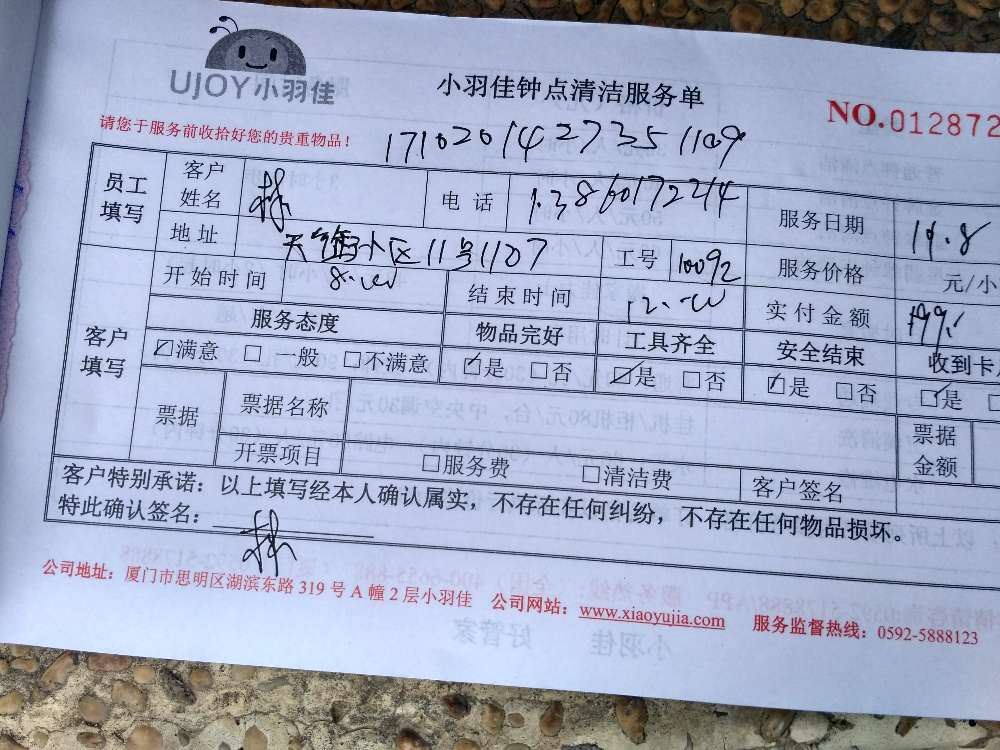 UJOY小羽佳
小羽佳钟点清洁服务单
NO.012872
请您于服务前收拾好您的贵重物品！
171020142735 1109
员工填写 客户姓名 林 电话 13860172214 服务日期 19.8
地址 小区11号1107 工号 10092 服务价格 元/小
开始时间 8:00 结束时间 12:00 实付金额
客户填写 服务态度 物品完好 工具齐全 安全结束 收到卡
☑满意 □一般 □不满意 ☑是 □否 ☑是 □否 ☑是 □否 ☑是
票据 票据名称 票据金额
开票项目 □服务费 □清洁费 客户签名
客户特别承诺：以上填写经本人确认属实，不存在任何纠纷，不存在任何物品损坏。
特此确认签名：林
公司地址：厦门市思明区湖滨东路319号A幢2层小羽佳 公司网站：www.xiaoyujia.com 服务监督热线：0592-5888123